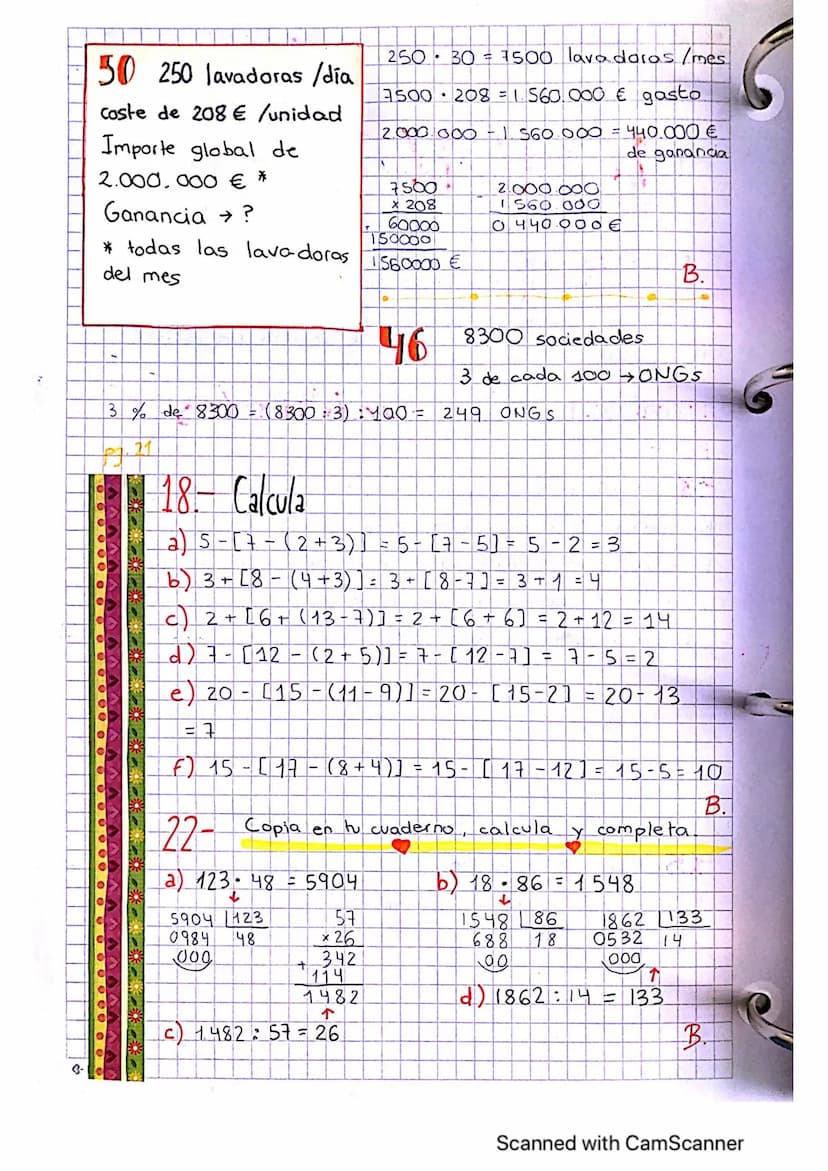 50 250 lavadoras /día
coste de 208 € /unidad
Importe global de
2.000.000 € *
Ganancia → ?
* todas las lavadoras
del mes
250 · 30 = 7500 lavadoras /mes
7500 · 208 = 1.560.000 € gasto
2.000.000 - 1.560.000 = 440.000 €
de ganancia
7500
x 208
60000
150000
1560000 €
2.000.000
- 1.560.000
0.440.000 €
B.
46 8300 sociedades
3 de cada 100 → ONGs
3 % de 8300 = (8300 · 3) : 100 = 249 ONGs
pg. 21
18.- Calcula
a) 5 - [7 - (2+3)] = 5 - [7 - 5] = 5 - 2 = 3
b) 3 + [8 - (4+3)] = 3 + [8 - 7] = 3 + 1 = 4
c) 2 + [6 + (13 - 7)] = 2 + [6 + 6] = 2 + 12 = 14
d) 7 - [12 - (2 + 5)] = 7 - [12 - 7] = 7 - 5 = 2
e) 20 - [15 - (11 - 9)] = 20 - [15 - 2] = 20 - 13
= 7
f) 15 - [17 - (8+4)] = 15 - [17 - 12] = 15 - 5 = 10
B.
22- Copia en tu cuaderno, calcula y completa.
a) 123 · 48 = 5904
5904 |123
0984 48
000
57
x 26
342
+ 114
1482
c) 1.482 : 57 = 26
b) 18 · 86 = 1548
1548 |86
688 18
00
1862 |133
0532 14
000
d) 1862 : 14 = 133
B.
Scanned with CamScanner